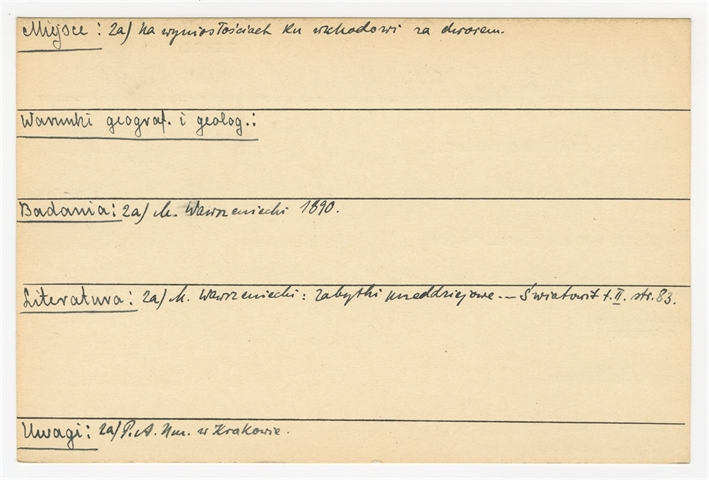 Miejsce: 2a/ na wyniosłościach ku wschodowi za dworem.
Warunki geograf. i geolog.:
Badania: 2a/ M. Wawrzeniecki 1890.
Literatura: 2a/ M. Wawrzeniecki: Zabytki przeddziejowe -- Światowit t. II. str. 83.
Uwagi: 2a/ P.A. Um. w Krakowie.